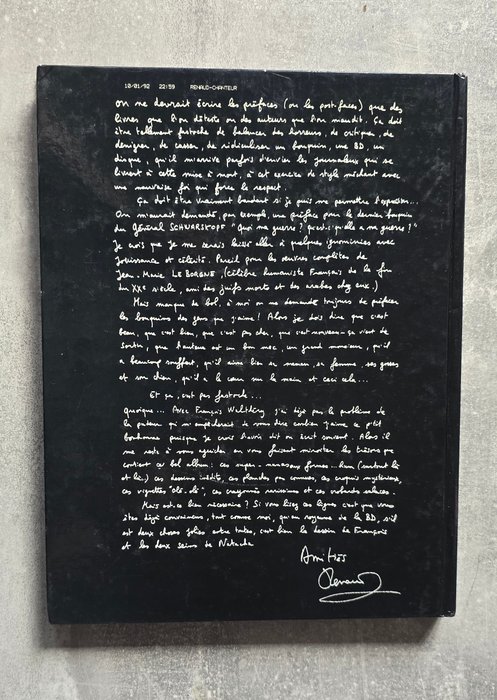 10/01/92 22:59 RENAUD-CHANTEUR
On ne devrait écrire les préfaces (ou les post-faces) que des
livres que l'on déteste ou des auteurs que l'on maudit. Ça doit
être tellement fastoche de balancer des horreurs, de critiquer, de
dénigrer, de casser, de ridiculiser un bouquin, une BD, un
disque, qu'il m'arrive parfois d'envier les journaleux qui se
livrent à cette mise à mort, à cet exercice de style méchant avec
une mauvaise foi qui force le respect.
Ça doit être vraiment bandant si je puis me permettre l'expression...
On m'aurait demandé, par exemple, une préface pour le dernier bouquin
du Général SCHWARSKOPF "Qui ma guerre? quoi qu'elle a ma guerre?"
Je crois que je me serais laissé aller à quelques ignominies avec
jouissance et célérité. Pareil pour les œuvres complètes de
Jean-Marie LE BORGNE, (célèbre humaniste Français de la fin
du XXe siècle, ami des juifs morts et des arabes chez eux.)
Mais manque de bol, à moi on me demande toujours de préfacer
les bouquins des gens que j'aime! Alors je dois dire que c'est
beau, que c'est bien, que c'est pas cher, que c'est nouveau-ça vient de
sortir, que l'auteur est un bon mec, un grand monsieur, qu'il
a beaucoup souffert, qu'il aime bien sa maman, sa femme, ses gosses
et son chien, qu'il a le cœur sur la main et ceci cela...
Et ça, c'est pas fastoche...
quoique... Avec François Walthéry, j'ai déjà pas le problème de
la pudeur qui m'empêcherait de vous dire combien j'aime ce p'tit
bonhomme puisque je crois l'avoir dit ou écrit souvent. Alors il
me reste à vous en faisant miroiter les trésors que
contient ce bel album: ces super- formes... hum (surtout là
et là,) ces dessins inédits, ces planches peu connues, ces croquis mystérieux,
ces vignettes "olé-olé", ces crayonnés rarissimes et ces rotondes salaces.
Mais est-ce bien nécessaire? Si vous lisez ces lignes c'est que vous
êtes déjà convaincus, tout comme moi, qu'au royaume de la BD, s'il
est deux choses jolies entre toutes, c'est bien le dessin de François
et les deux seins de Natacha
Amitiés
Renaud